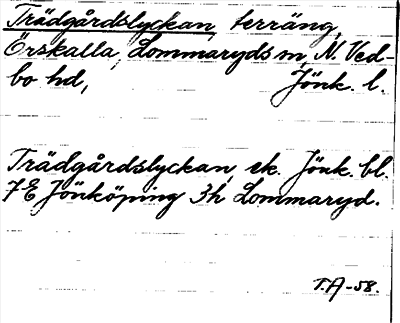 Trädgårdslyckan, terräng,
Örskalla, Lommaryds sn, N. Ved-
bo hd, Jönk. l.
Trädgårdslyckan, ek. Jönk. bl.
7E Jönköping 3h Lommaryd.
T.A-58.